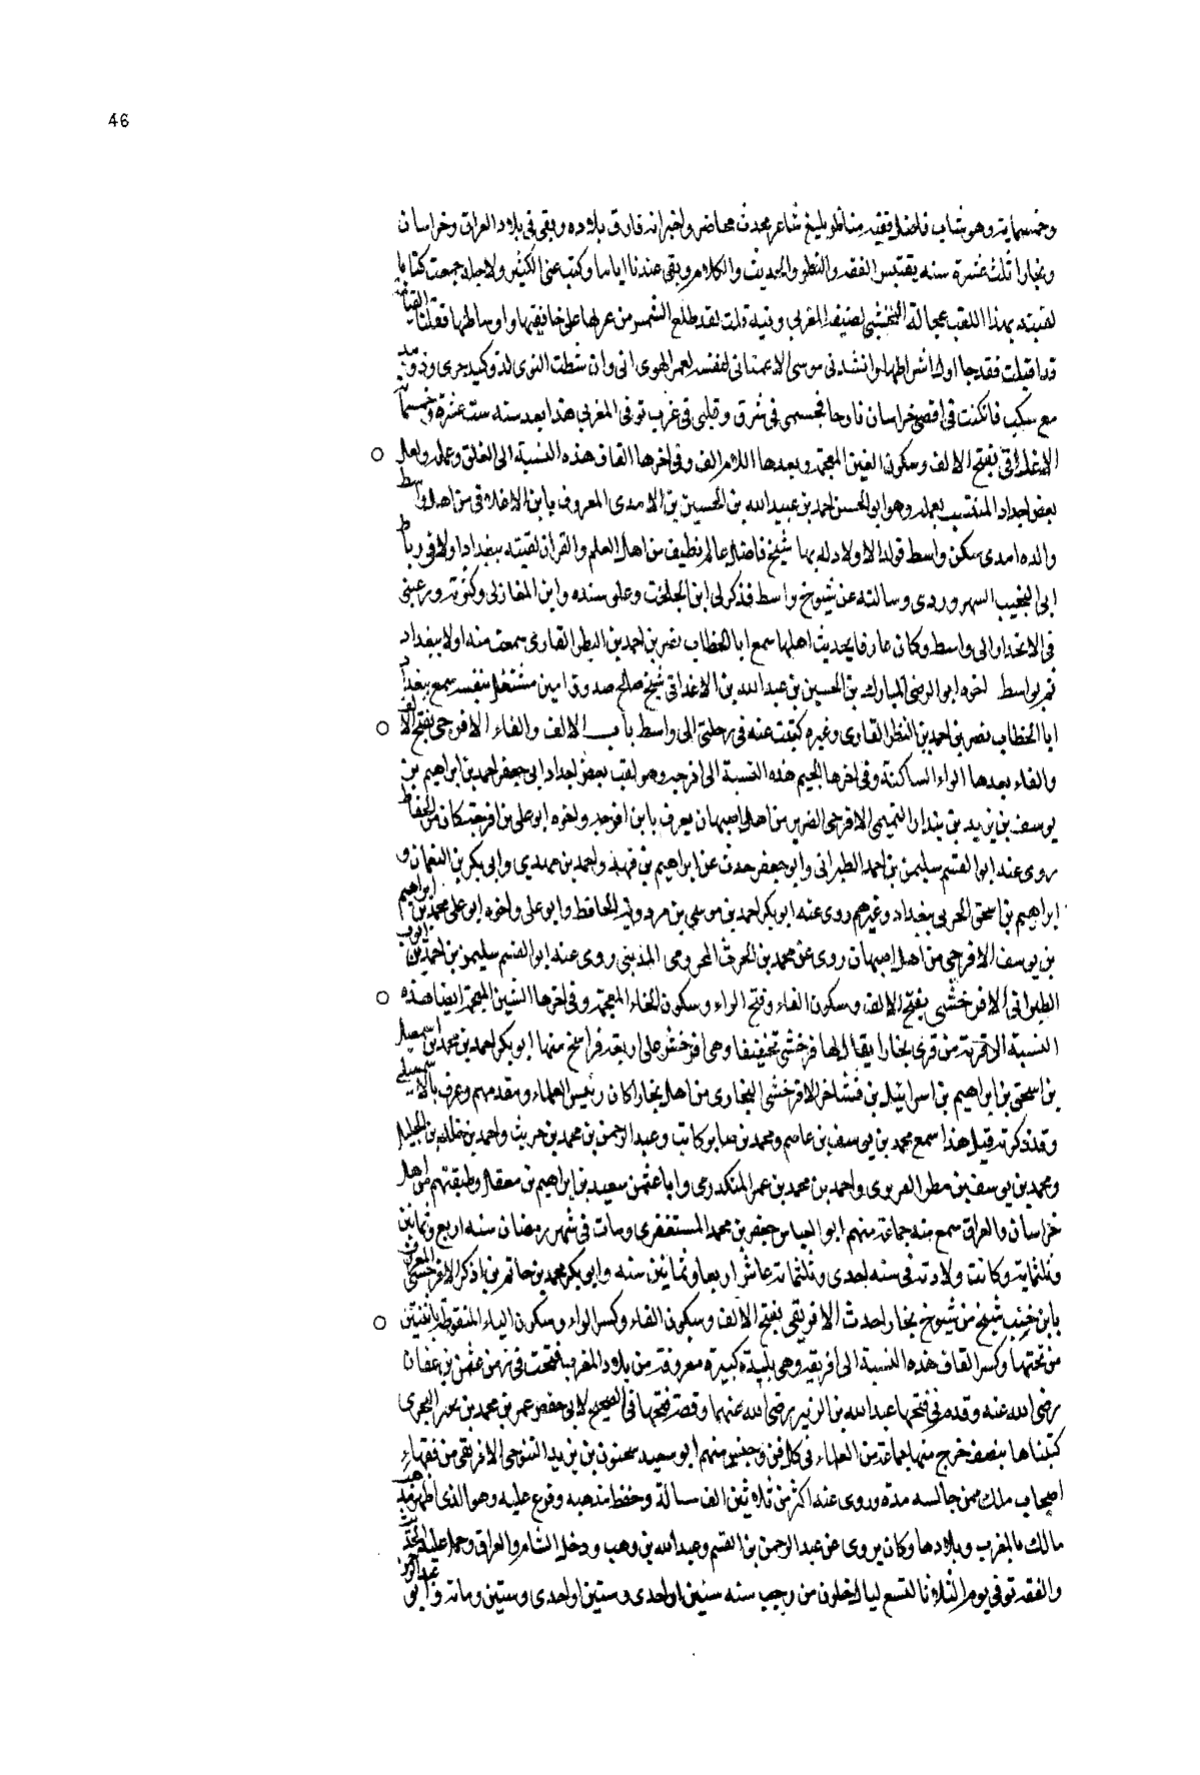 46
وخمسماية وهو شاب فاضل فقيه مناظر بليغ شاعر محدث محاضر واخبر انه فارق بلاده وبقى فى بلاد العراق وخراسان
وبخارا ثلث عشرة سنه يقتبس الفقه والنظر والحديث والكلام وبقى عندنا اياما وكتب عنى الكثير ولاجله جمعت كتابا
لقبته بهذا اللقب عجالة لضيفه المغربى وفيه قلت لقد طلع الشمس من غربها على خافقيها واوساطها فقلنا القيامة
قد اقبلت فقد جا اول اشراطها وانشدنى موسى الاغماتى لنفسه لعمر الهوى انى وان شطت النوى لذو كبد حرى وذو مدمع
مع سكب فان كنت فى اقصى خراسان نازحا فجسمى فى شرق وقلبى فى غرب توفى المغربى هذا بعد سنه ست عشرة وخمسماية
الاغلاقى بفتح الالف وسكون الغين المعجمة وبعدها اللام الف وفى اخرها القاف هذه النسبة الى الغلق وعمله ولعل
بعض اجداد المنتسب بعمله وهو ابو الحسن احمد بن عبيد الله بن الحسين بن الامدى المعروف بابن الاغلاقى من اهل واسط
والده امدى سكن واسط فولد الاولاد له بها شيخ فاضل عالم نظيف من اهل العلم والقران لقيته ببغداد اولا فى رباط
ابى النجيب السهروردى وسالته عن شيوخ واسط فذكر لى ابن الجلخت وعلى سنده وابن المغازلى وكثرته ورغبنى
فى الانحدار الى واسط وكان عارفا بحديث اهلها سمع ابا الخطاب نصر بن احمد بن البطر القارى سمعت منه اولا ببغداد
ثم بواسط اخوه ابو الرضى المبارك بن الحسين بن عبد الله بن الاغلاقى شيخ صالح صدوق امين مشتغل بنفسه سمع ببغداد
ابا الخطاب نصر بن احمد بن النظر القارى وغيره كتبت عنه فى رحلتى الى واسط باب الالف والفاء الافرجى بفتح الالف
والفاء بعدها الراء الساكنة وفى اخرها الجيم هذه النسبة الى افرجه وهو لقب بعض اجداد ابى جعفر احمد بن ابراهيم بن
يوسف بن يزيد بن بندار التميمى الافرجى الضرير من اهل اصبهان يعرف بابن افرجه واخوه ابو على بن افرجة كان من الحفاظ
روى عنه ابو القسم سليمن بن احمد الطبرانى وابو جعفر حدث عن ابراهيم بن فهد واحمد بن مهدى وابى بكر بن النعمان و
ابراهيم بن اسحق الحربى ببغداد وغيرهم روى عنه ابو بكر احمد بن موسى بن مردويه الحافظ وابو على واخوه ابو على محمد بن ابراهيم
بن يوسف الافرجى من اهل اصبهان روى عن محمد بن الحرث المخرومى المدينى روى عنه ابو القسم سليمن بن احمد بن ايوب
الطبرانى الافرخشى بفتح الالف وسكون الفاء وفتح الراء وسكون الخاء المعجمة وفى اخرها الشين المعجمة ايضا هذه
النسبة الى قرية من قرى بخارا يقال لها فرخشى تخفيفا وهى افرخش على اربعة فراسخ منها ابو بكر احمد بن محمد بن اسمعيل
بن اسحق بن ابراهيم بن اسرائيل بن فشاخر الافرخشى البخارى من اهل بخارا كان رئيس العلماء ومقدمهم وعرف بالاسمعيلى
وقد ذكرته قبل هذا سمع محمد بن يوسف بن عاصم ومحمد بن صابر كاتب وعبد الرحمن بن محمد بن حريث واحمد بن خالد بن الخليل
ومحمد بن يوسف بن مطر الفربرى واحمد بن محمد بن عمر المنكدرى وابا عثمن سعيد بن ابراهيم بن معقل وطبقتهم من اهل
خراسان والعراق سمع منه جماعة منهم ابو العباس جعفر بن محمد المستغفرى ومات فى شهر رمضان سنه اربع وثمانين
وثلثماية وكانت ولادته فى سنه احدى وثلثماية عاش اربعا وثمانين سنه وابو بكر محمد بن حاتم بن اذكر الافرخشى المعروف
بابن خبيب شيخ من شيوخ بخارا حدث الافريقى بفتح الالف وسكون الفاء وكسر الراء وسكون الياء المنقوطة باثنتين
من تحتها وكسر القاف هذه النسبة الى افريقيه وهى بليدة كبيرة معروفة من بلاد المغرب افتتحت فى زمن عثمن بن عفان
رضى الله عنه وقدم فى فتحها عبد الله بن الزبير رضى الله عنهما وقصة فتحها فى الصحيح لابى حفص عمر بن محمد بن بجير البجرى
كتبناها بنصف خرج منها جماعة من العلماء فى كل فن وجنس منهم ابو سعيد سحنون بن يزيد التنوخى الافريقى من فقهاء
اصحاب ملك ممن جالسه مدة وروى عنه اكثر من ثلاثين الف مسالة وحفظ مذهبه وفرع عليه وهو الذى اظهر مذهب
مالك بالمغرب وبلادها وكان يروى عن عبد الرحمن بن القسم وعبد الله بن وهب ودخل الشام والعراق وحمل عليه الحديث
والفقه توفى يوم الثلاثا لتسع ليال خلون من رجب سنه ستين او احدى وستين او احدى وستين وماتة وابو